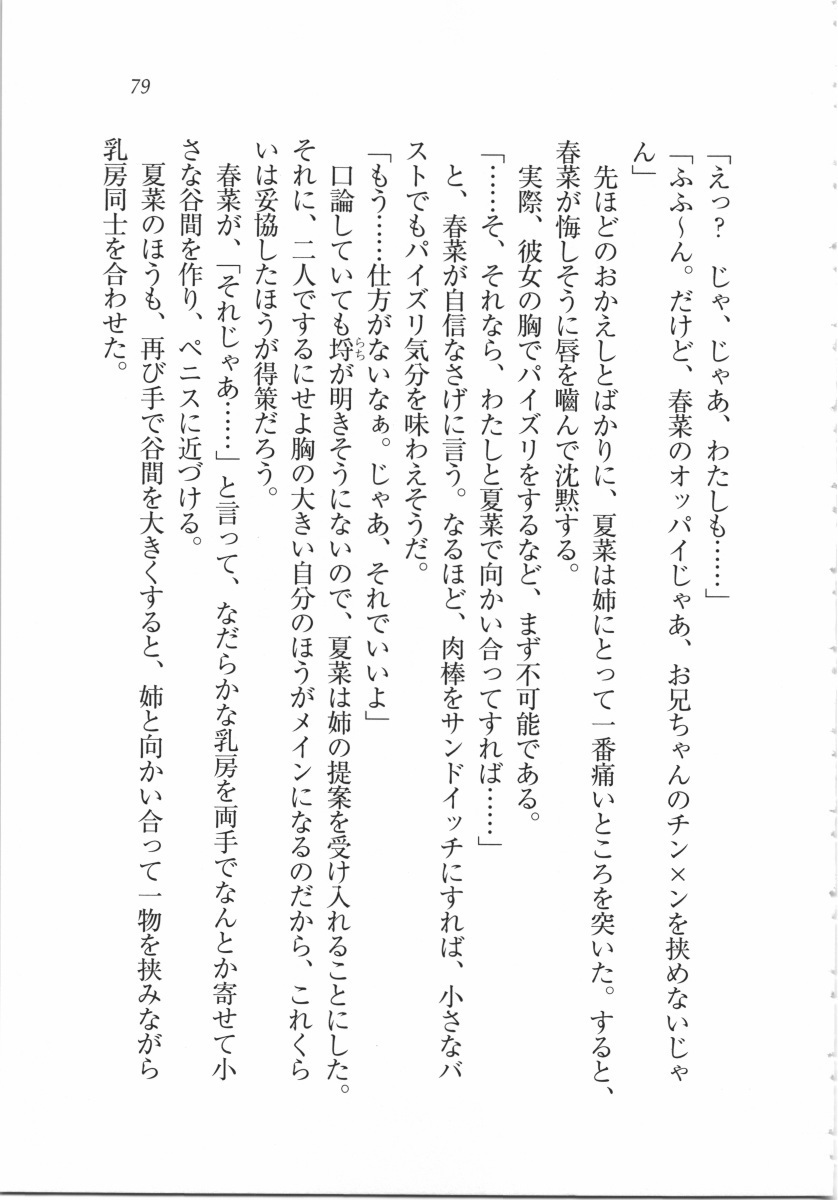 79
「えっ？　じゃ、じゃあ、わたしも……」
「ふふ～ん。だけど、春菜のオッパイじゃあ、お兄ちゃんのチン×ンを挟めないじゃ
ん」
先ほどのおかえしとばかりに、夏菜は姉にとって一番痛いところを突いた。すると、
春菜が悔しそうに唇を嚙んで沈黙する。
実際、彼女の胸でパイズリをするなど、まず不可能である。
「……そ、それなら、わたしと夏菜で向かい合ってすれば……」
と、春菜が自信なさげに言う。なるほど、肉棒をサンドイッチにすれば、小さなバ
ストでもパイズリ気分を味わえそうだ。
「もう……仕方がないなぁ。じゃあ、それでいいよ」
口論していても埒らちが明きそうにないので、夏菜は姉の提案を受け入れることにした。
それに、二人でするにせよ胸の大きい自分のほうがメインになるのだから、これくら
いは妥協したほうが得策だろう。
春菜が、「それじゃあ……」と言って、なだらかな乳房を両手でなんとか寄せて小
さな谷間を作り、ペニスに近づける。
夏菜のほうも、再び手で谷間を大きくすると、姉と向かい合って一物を挟みながら
乳房同士を合わせた。